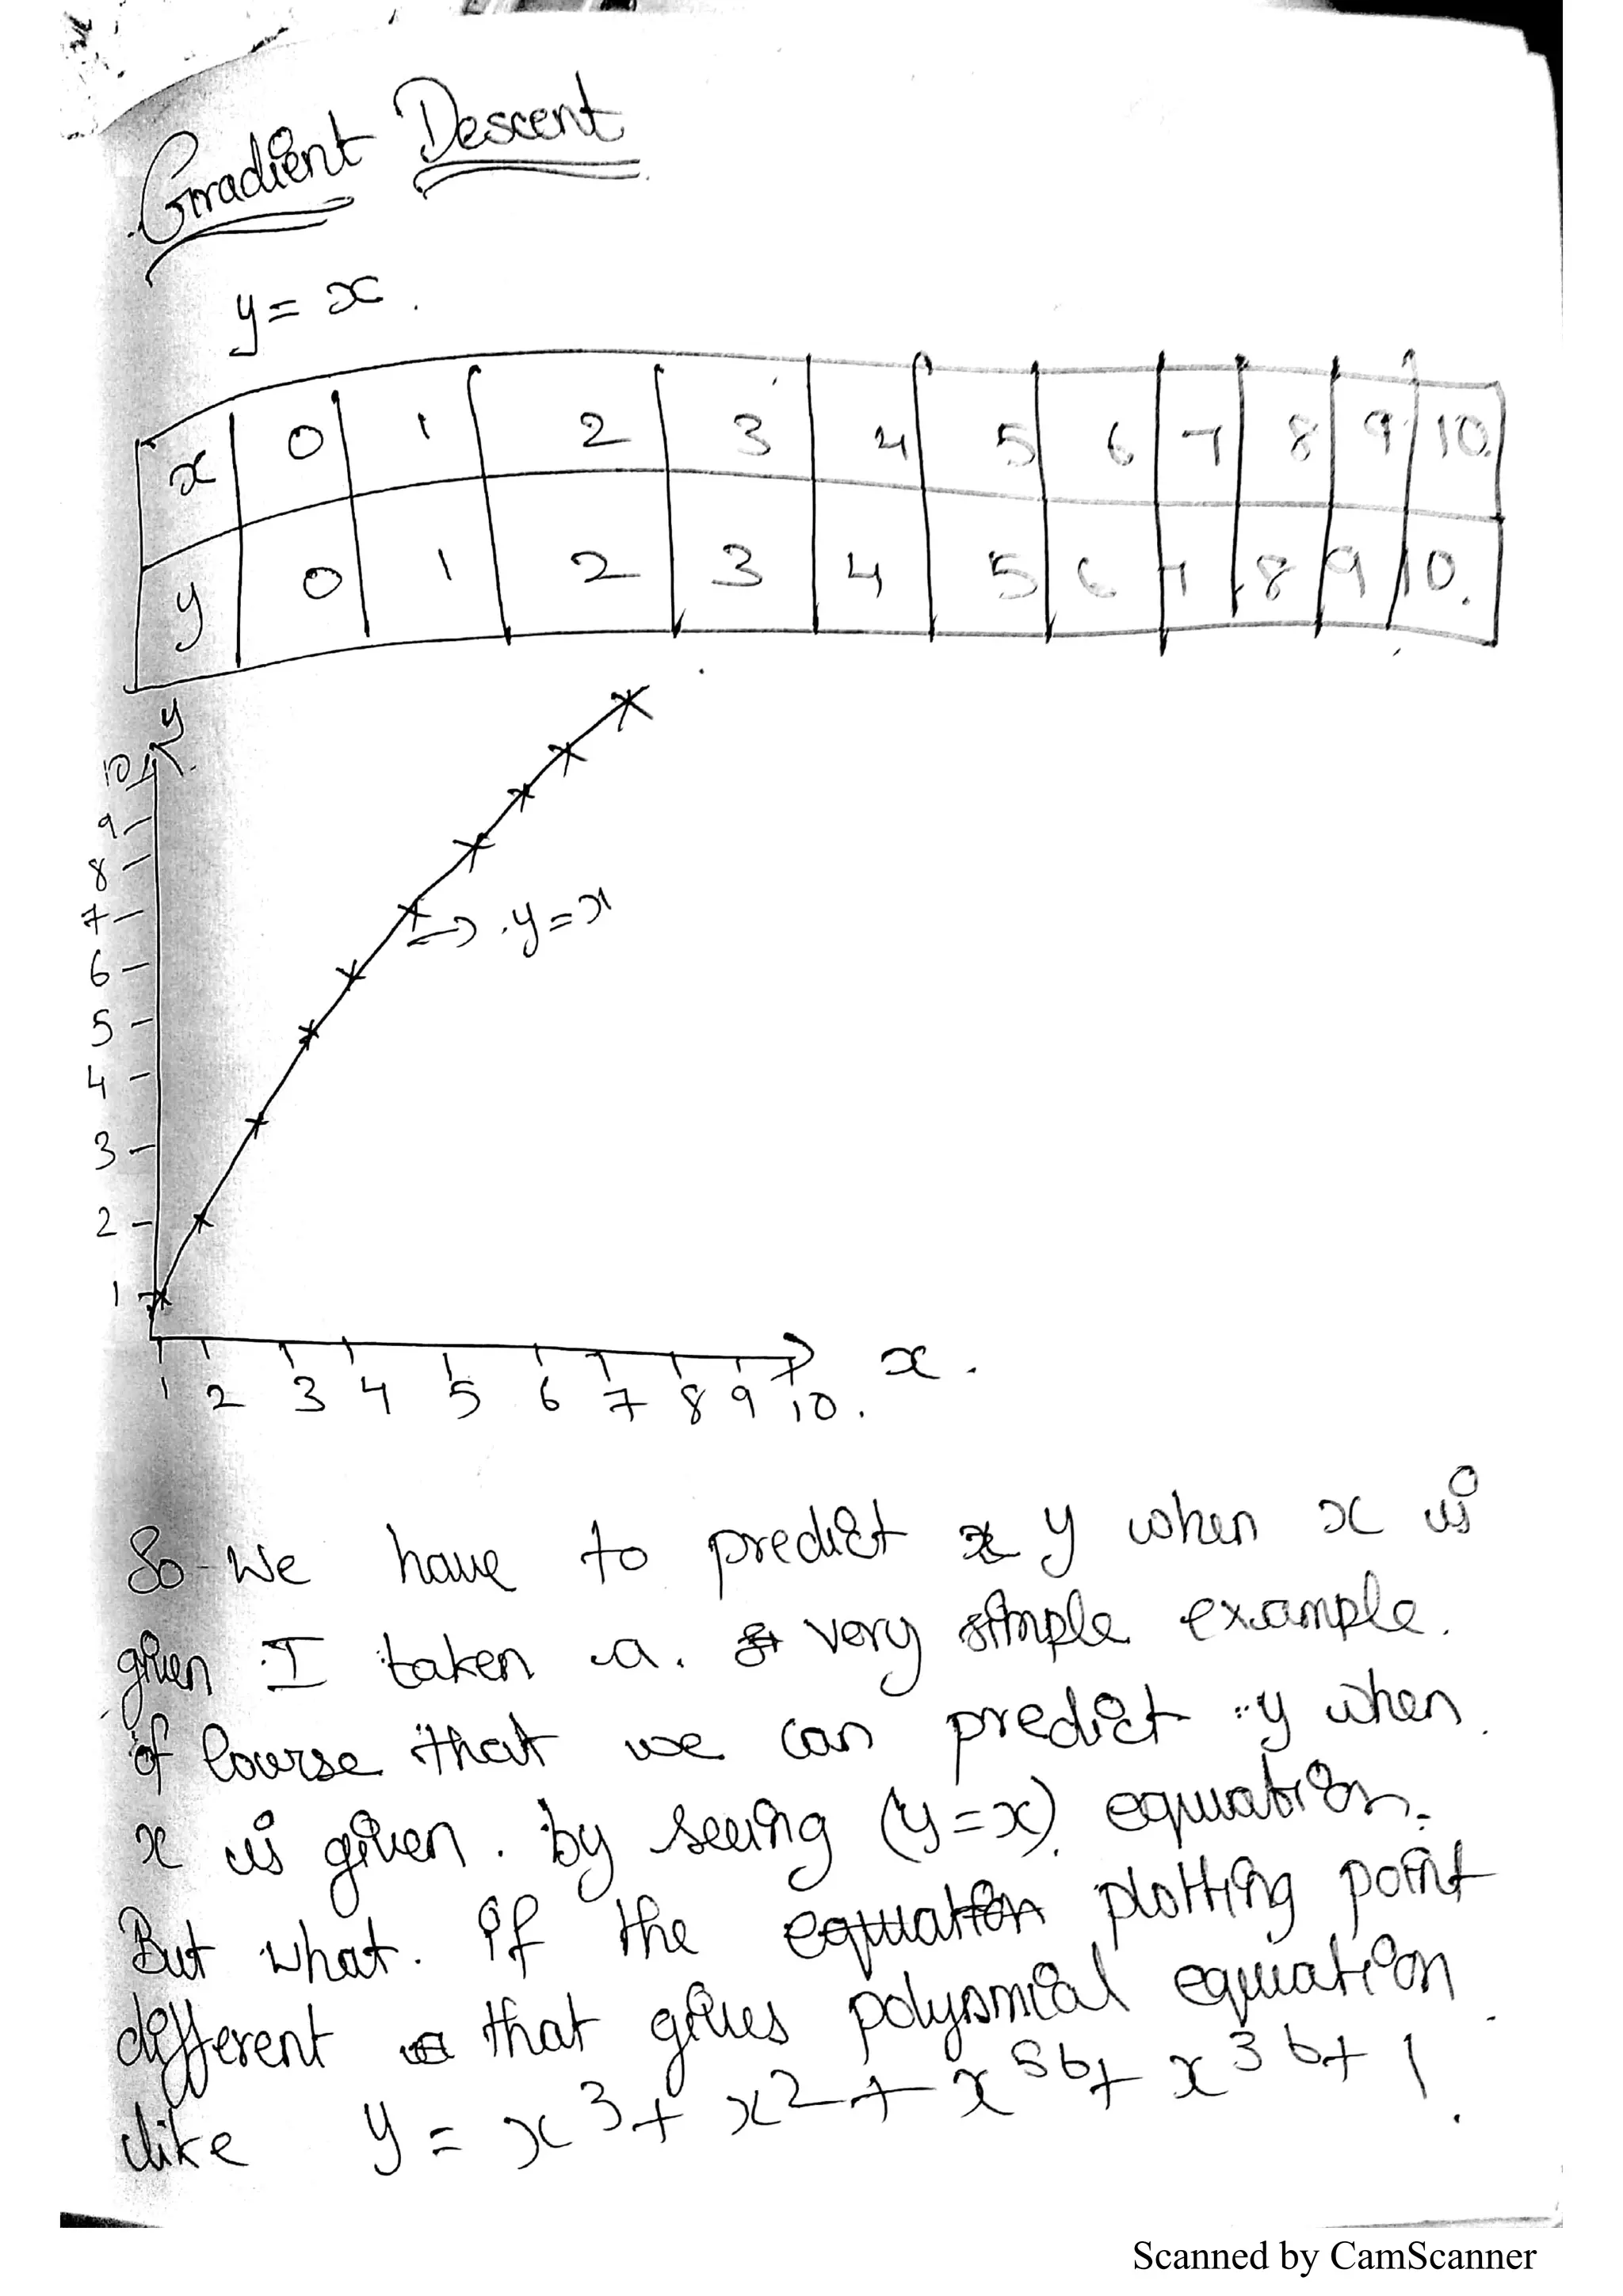 Gradient Descent
y = x.
x 0 1 2 3 4 5 6 7 8 9 10
y 0 1 2 3 4 5 6 7 8 9 10.
y
10
9
8
7
6
5
4
3
2
1
→ y = x
1 2 3 4 5 6 7 8 9 10. x.
So we have to predict y when x is
given I taken a. very simple example.
of course that we can predict y when.
x is given. by seeing (y=x). equation.
But what. if the equation plotting point
different that gives polynmial equation
like y = x³ + x² + x⁵⁶ + x³⁶ + 1.
Scanned by CamScanner